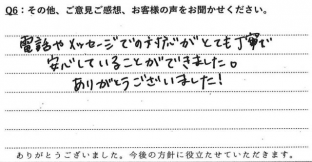 Q6：その他、ご意見ご感想、お客様の声をお聞かせください。
電話やメッセージでの対応がとても丁寧で
安心していることができました。
ありがとうございました！
ありがとうございました。今後の方針に役立たせていただきます。